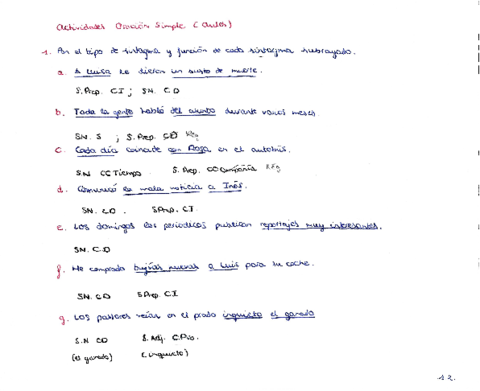 Actividades Oración Simple (Aules)
1. Pon el tipo de sintagma y función de cada sintagma subrayado.
a. A Luisa le dieron un susto de muerte.
S.Prep. C.I ; SN. C.D
b. Toda la gente habló del asunto durante varios meses
SN. S ; S.Prep. C
c. Cada día coincide con Rosa en el autobús.
S.N CC Tiempo S. Prep. CC Compañía
d. Comunicó la mala noticia a Inés.
SN. CD . S.Prep. C.I.
e. Los domingos los periódicos publican reportajes muy interesantes.
SN. C.D
f. He comprado bujías nuevas a Luis para su coche.
SN. CD S.Prep C.I
g. Los pastores veían en el prado inquieto el ganado
S.N CD S. Adj. C.Pvo.
(el ganado) (inquieto)